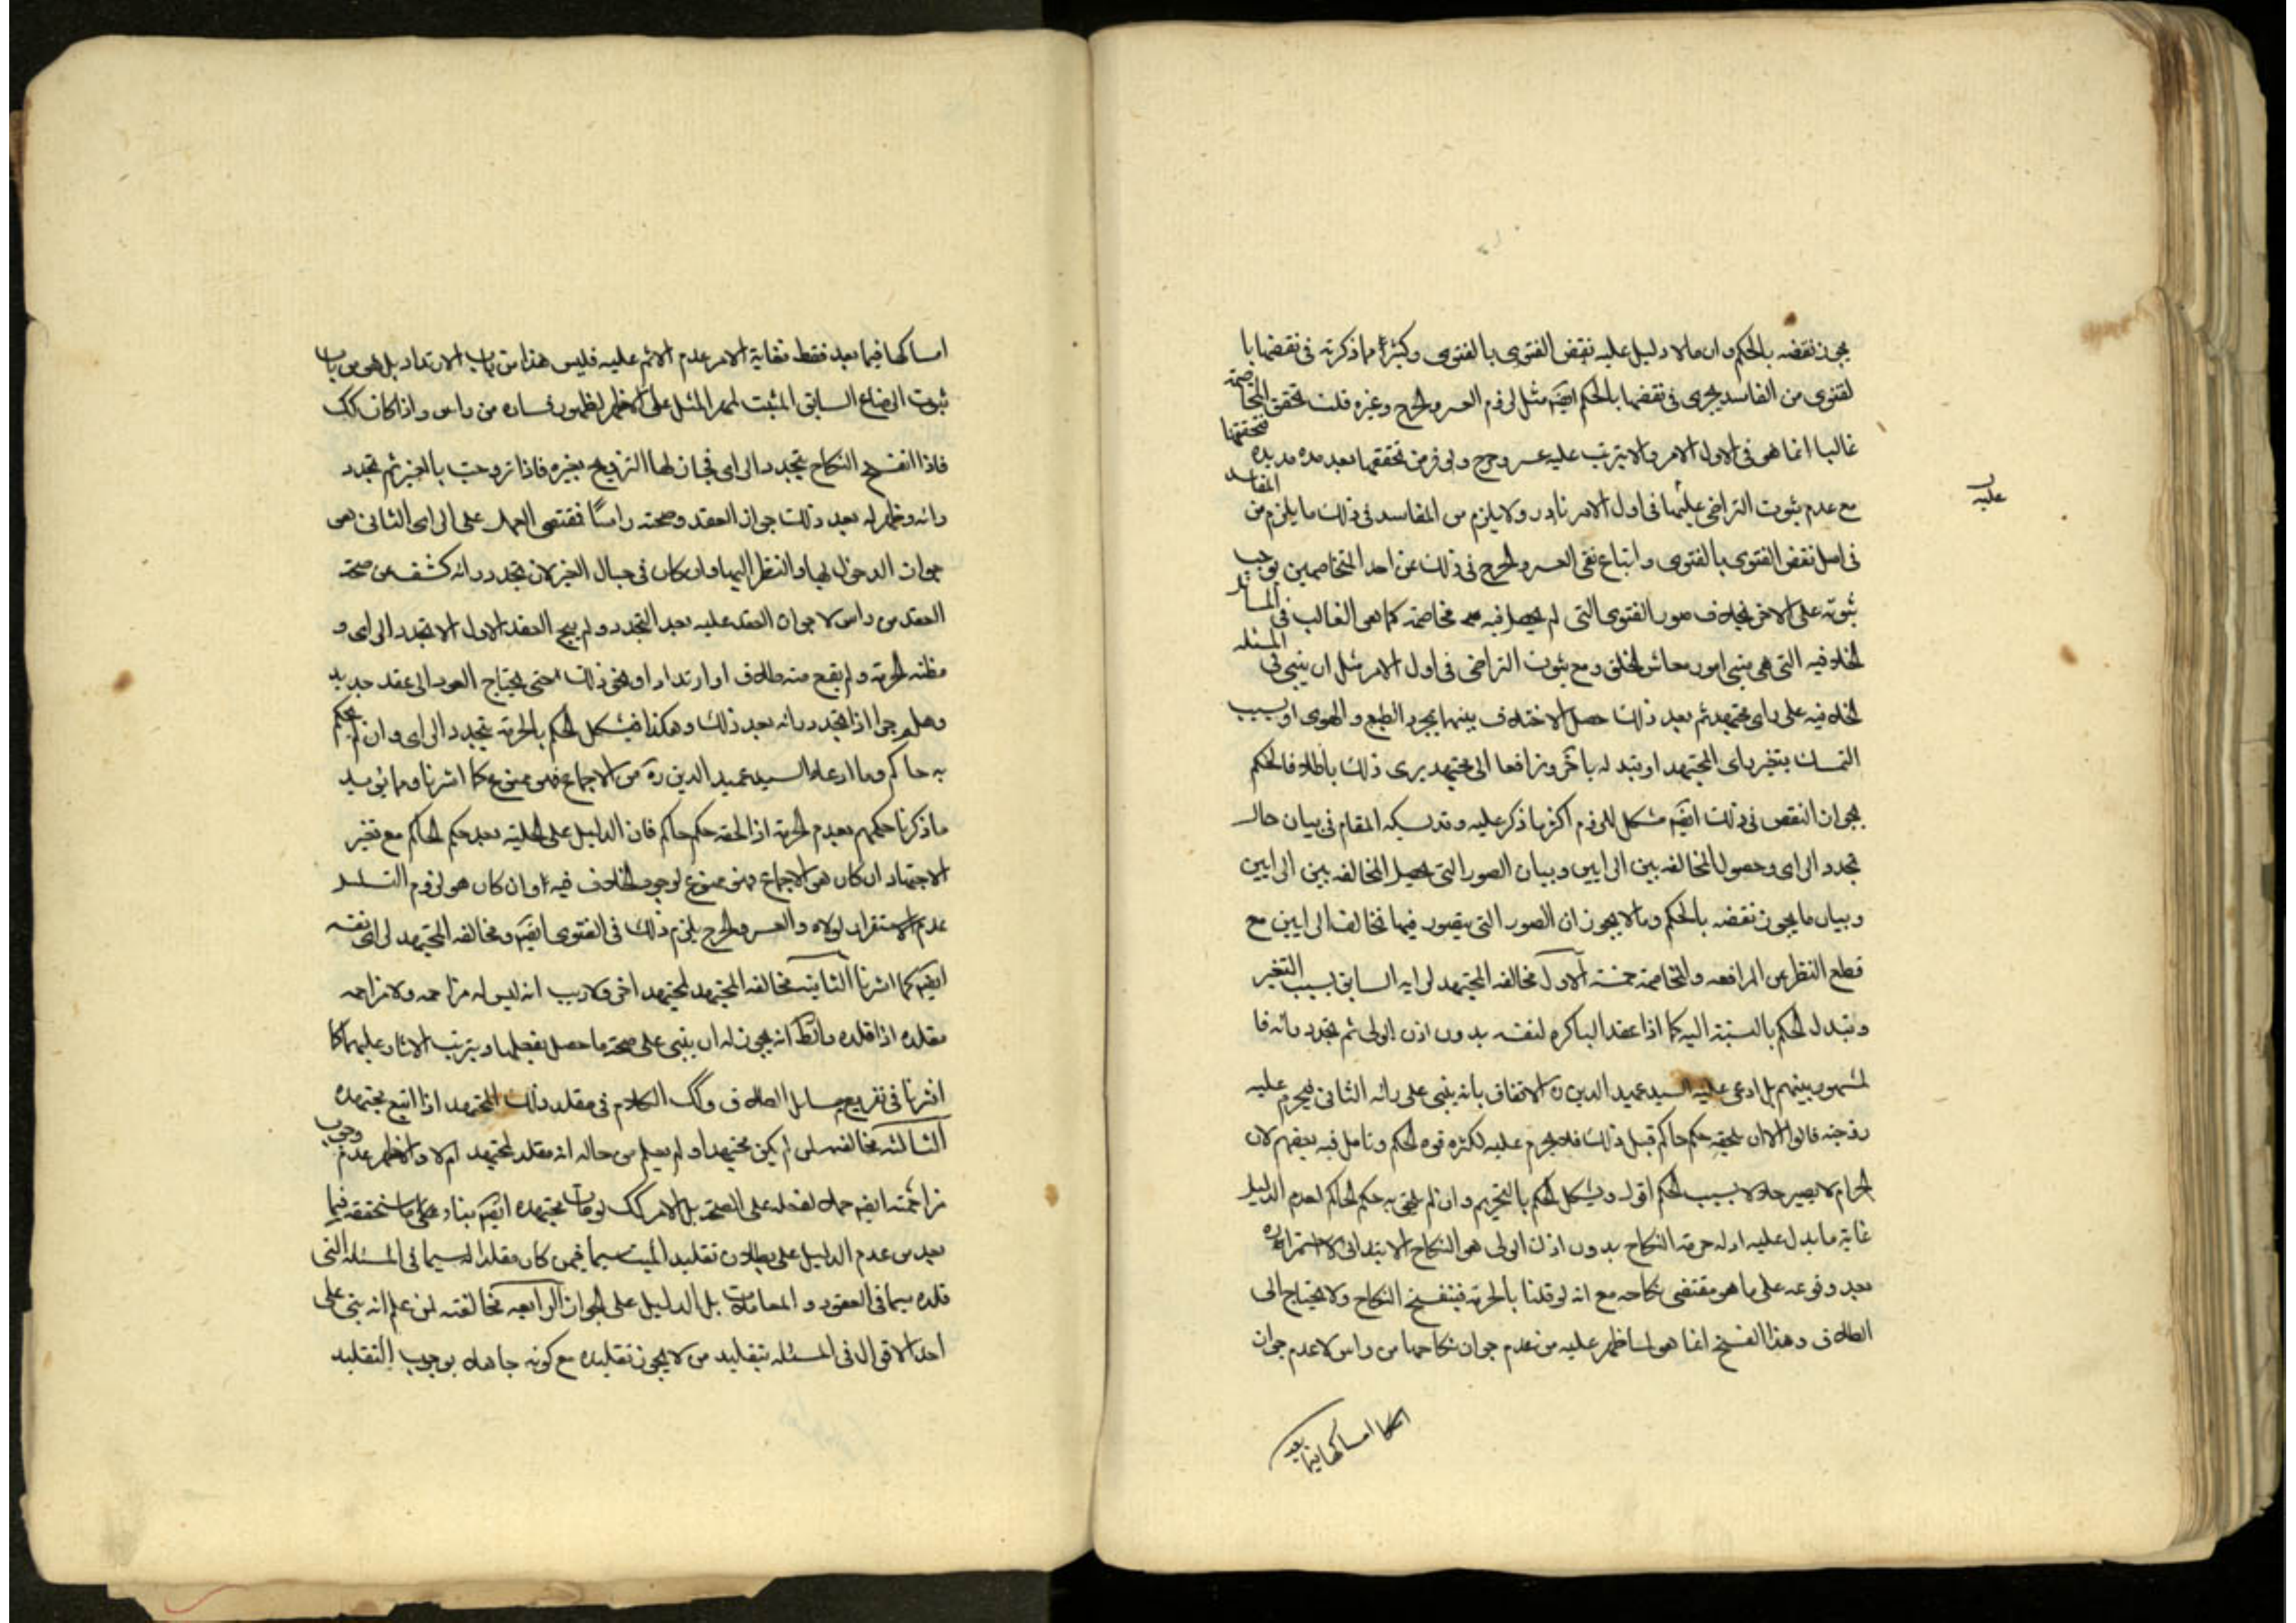 يجوز نقضه بالحكم وان مالا دليل عليه نقض الفتوى بالفتوى وكثيرا مما ذكرته في نقضها با
لفتوى من الفاسد يجرى في نقضها بالحكم ايضا مثل لزوم العسر والحرج وغيره قلت تحقق المخاصمة
غالبا انما هى في الاول الامر ولا يترتب عليه عسر وحرج ولو فرض تحققها بعد مدة مديدة فتحققها
مع عدم ثبوت التراضى عليها في اول الامر نادر ولا يلزم من المفاسد في ذلك ما يلزم من المفاسد
عليه
في اصل نقض الفتوى بالفتوى واتباع نفى العسر والحرج في ذلك عن احد المتخاصمين يوجب
ثبوته على الاخر بخلاف صور الفتوى التى لم يحصل فيه مخاصمة كما هى الغالب في المسائل
الخلافيه التى هى مبنى امور معاش الخلق ومع ثبوت التراضى في اول الامر مثل ان يبنى في المسئله
الخلافيه على راى مجتهد ثم بعد ذلك حصل الاختلاف بينهما بمجرد الطبع والهوى او بسبب
التمسك بتغير راى المجتهد او تبدله باخر وترافعا الى مجتهد يرى ذلك باطلا فالحكم
بجواز النقض في ذلك ايضا مشكل للزوم اكثر ما ذكر عليه المقام في بيان حال
تجدد الراى وحصول المخالفه بين الرايين وبيان الصور التى يحصل المخالفه بين الرايين
وبيان ما يجوز نقضه بالحكم وما لا يجوز ان الصور التى يتصور فيها تخالف الرايين مع
قطع النظر عن المرافعه والمخاصمة خمسة الاول مخالفه المجتهد لرايه السابق بسبب التغير
وتبدل الحكم بالنسبة اليه كما اذا عقد الباكره لنفسه بدون اذن الولى ثم تجدد رائه فا
لمشهور بينهم بل ادعى عليه السيد عميد الدين ره الاتفاق بانه يبنى على رائه الثانى فيحرم عليه
زوجته قالوا الا ان يلحقه حكم حاكم قبل ذلك فلا يحرم عليه لكثره قوه الحكم وتامل فيه بعضهم لان
الحرام لا يصير حلالا بسبب الحكم اقول ويشكل الحكم بالتحريم وان لم يلحق به حكم الحاكم لعدم الدليل
غاية ما يدل عليه ادله حرمة النكاح بدون اذن الولى هو النكاح الابتدائى لا استمراره
بعد وقوعه على ما هو مقتضى نكاحه مع انه لو قلنا بالحرمة فينفسخ النكاح ولا يحتاج الى
الطلاق وهذا الفسخ انما هو لما ظهر عليه من عدم جواز نكاحها من راس لا عدم جواز
امساكها فيما بعد
امساكها فيما بعد فقط فغاية الامر عدم الاثم عليه فليس هذا من باب الارتداد بل هى من باب
ثبوت الرضاع السابق المثبت لمهر المثل على الاظهر لظهور فساده من راس واذا كان كك
فاذا انفسخ النكاح بتجدد الراى فجاز لها التزويج بغيره فاذا تزوجت بالغير ثم تجدد
رائه وظهر له بعد ذلك جواز العقد وصحته راسا فمقتضى العمل على الراى الثانى هى
جواز الدخول بها والنظر اليها وان كان في حبال الغير لان تجدد رائه كشف عن صحة
العقد من راس لا جواز العقد عليه بعد التجدد ولم يبح العقد الاول الا تجدد الراى و
مظنه الحرمة ولم يقع منه طلاق او ارتداد او نحو ذلك حتى يحتاج العود الى عقد جديد
وهلم جرا اذا تجدد رائه بعد ذلك وهكذا فيشكل الحكم بالحرمة بتجدد الراى وان لم يحكم
به حاكم وما ادعاه السيد عميد الدين ره من الاجماع فهى ممنوع كما اشرنا ومما يؤيد
ما ذكرنا حكمهم بعدم الحرمة اذا لحقه حكم حاكم فان الدليل على الحلية بعد حكم الحاكم مع تغير
الاجتهاد ان كان هو الاجماع فهى ممنوع لوجود الخلاف فيه وان كان هو لزوم التسلسل
عدم الاستقرار لولاه والعسر والحرج يلزم ذلك في الفتوى ايضا ومخالفه المجتهد لراى نفسه
ايضا كما اشرنا الثانية مخالفه المجتهد لمجتهد اخر ولا ريب انه ليس له مزاحمه ولا مزاحمه
مقلده اذا قلده والظ انه يجوز له ان يبنى على صحة ما حصل بفعلها ويترتب الاثار عليهما كما
اشرنا في تفريع مسايل الطلاق وكك الكلام في مقلد ذلك المجتهد اذا اتبع مجتهده
الثالثه مخالفه لمن لم يكن مجتهدا ولم يعلم من حاله انه مقلد لمجتهد ام لا والاظهر عدم وجوب
مزاحمته ايضا حملا لفعله على الصحة بل الامر كك لو مات مجتهده ايضا بناء على ما سنحققه فيما
بعد من عدم الدليل على بطلان تقليد الميت سيما فيمن كان مقلدا له سيما في المسئله التى
قلده سيما في العقود والمعاملات بل الدليل على الجواز الرابعه مخالفته لمن علم انه بنى على
احد الاقوال في المسئله بتقليد من لا يجوز تقليده مع كونه جاهلا بوجوب التقليد